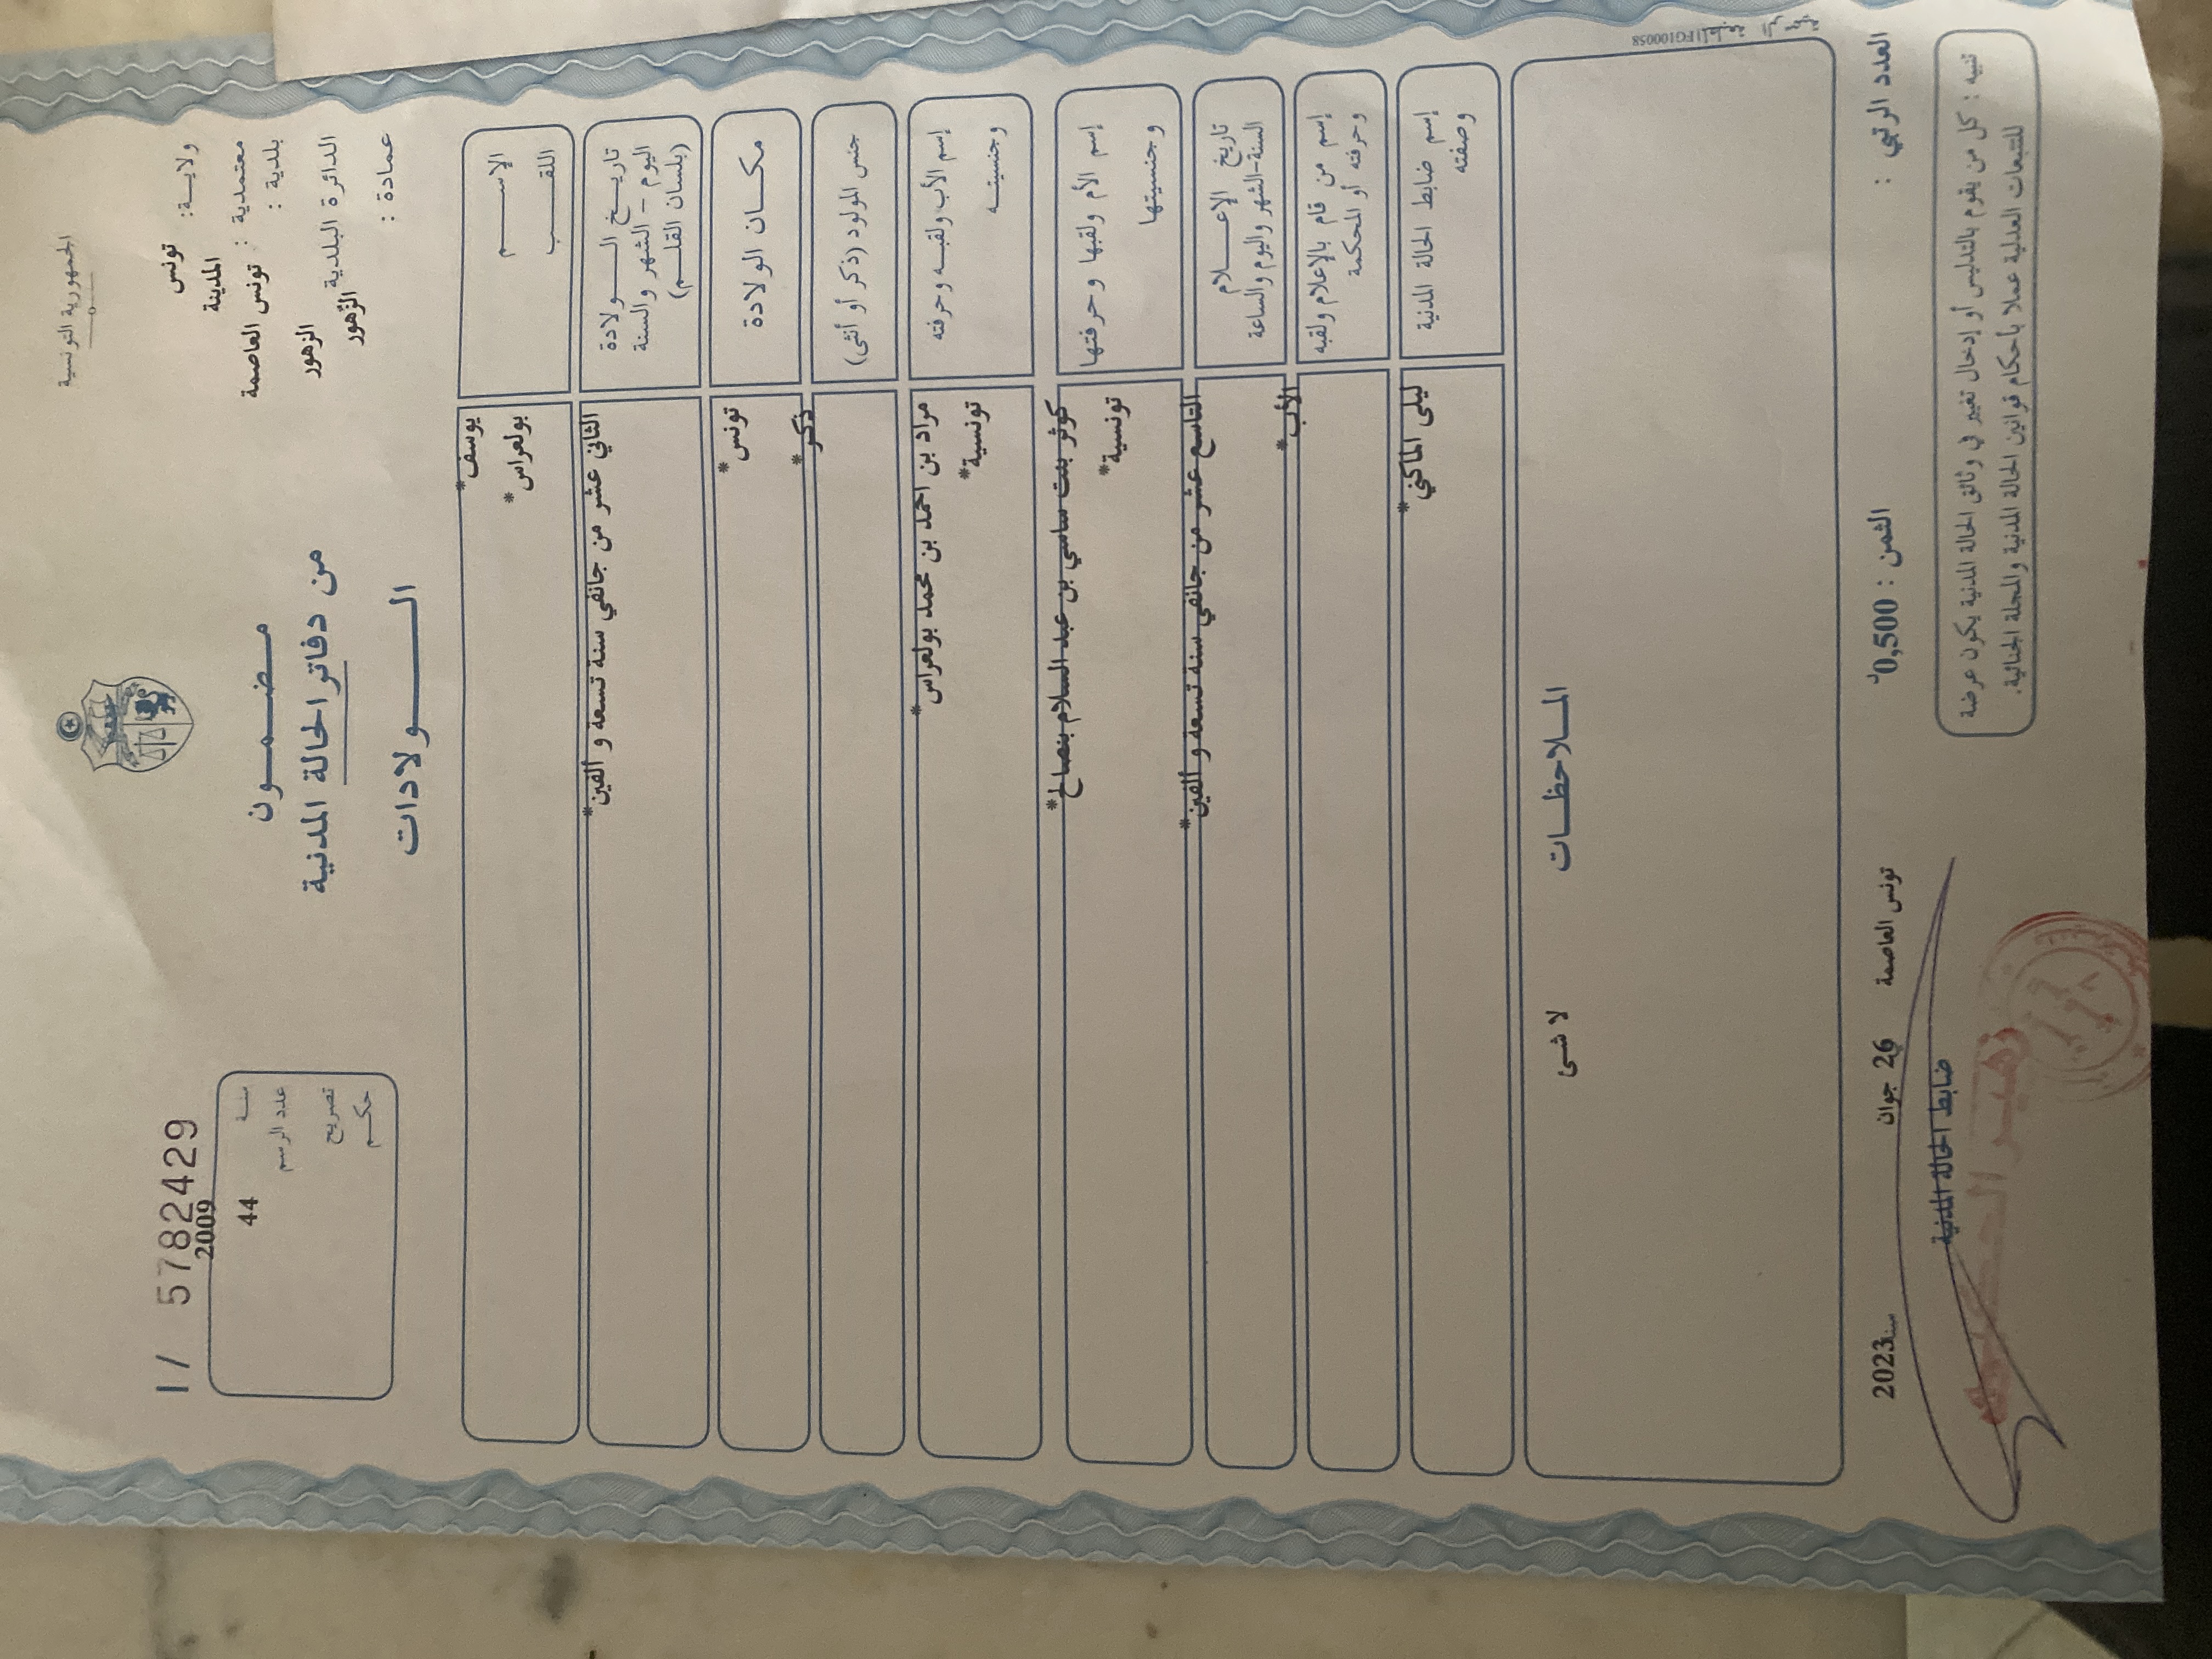 الجمهورية التونسية
ولايــة: تونس
المدينة
معتمدية : تونس العاصمة
بلدية :
الدائرة البلدية الزهور
الزهور
عمادة :
مـضـمــون
من دفاتر الحالة المدنية
الــــولادات
I/ 5782429
2009
سنة
عدد الرسم 44
تصريح
حكـم
الإســـم يوسف*
اللقــب بولعراس*
تاريــخ الــــولادة الثاني عشر من جانفي سنة تسعة و ألفين*
اليوم - الشهر والسنة
(بلسان القلـم)
مكــان الولادة تونس*
جنس المولود (ذكر أو أنثى) ذكر*
إسم الأب ولقبـه وحرفته مراد بن احمد بن محمد بولعراس*
وجنسيتــه تونسية*
إسم الأم ولقبها وحرفتها كوثر بنت ساسي بن عبد السلام بنصالح*
وجنسيتها تونسية*
تاريخ الإعــــلام التاسع عشر من جانفي سنة تسعة و ألفين*
السنة-الشهر واليوم والساعة
إسم من قام بالإعلام ولقبه الأب*
وحرفته أو المحكمة
إسم ضابط الحالة المدنية ليلى الماكني*
وصفته
المــلاحظــات
لا شى
العدد الرتبي :
الثمن : 0,500د
تونس العاصمة في 26 جوان سنة 2023
ضابط الحالة المدنية
تنبيه : كل من يقوم بالتدليس أو إدخال تغيير في وثائق الحالة المدنية يكون عرضة
للتتبعات العدلية عملا بأحكام قوانين الحالة المدنية والمجلة الجنائية.
FG100058